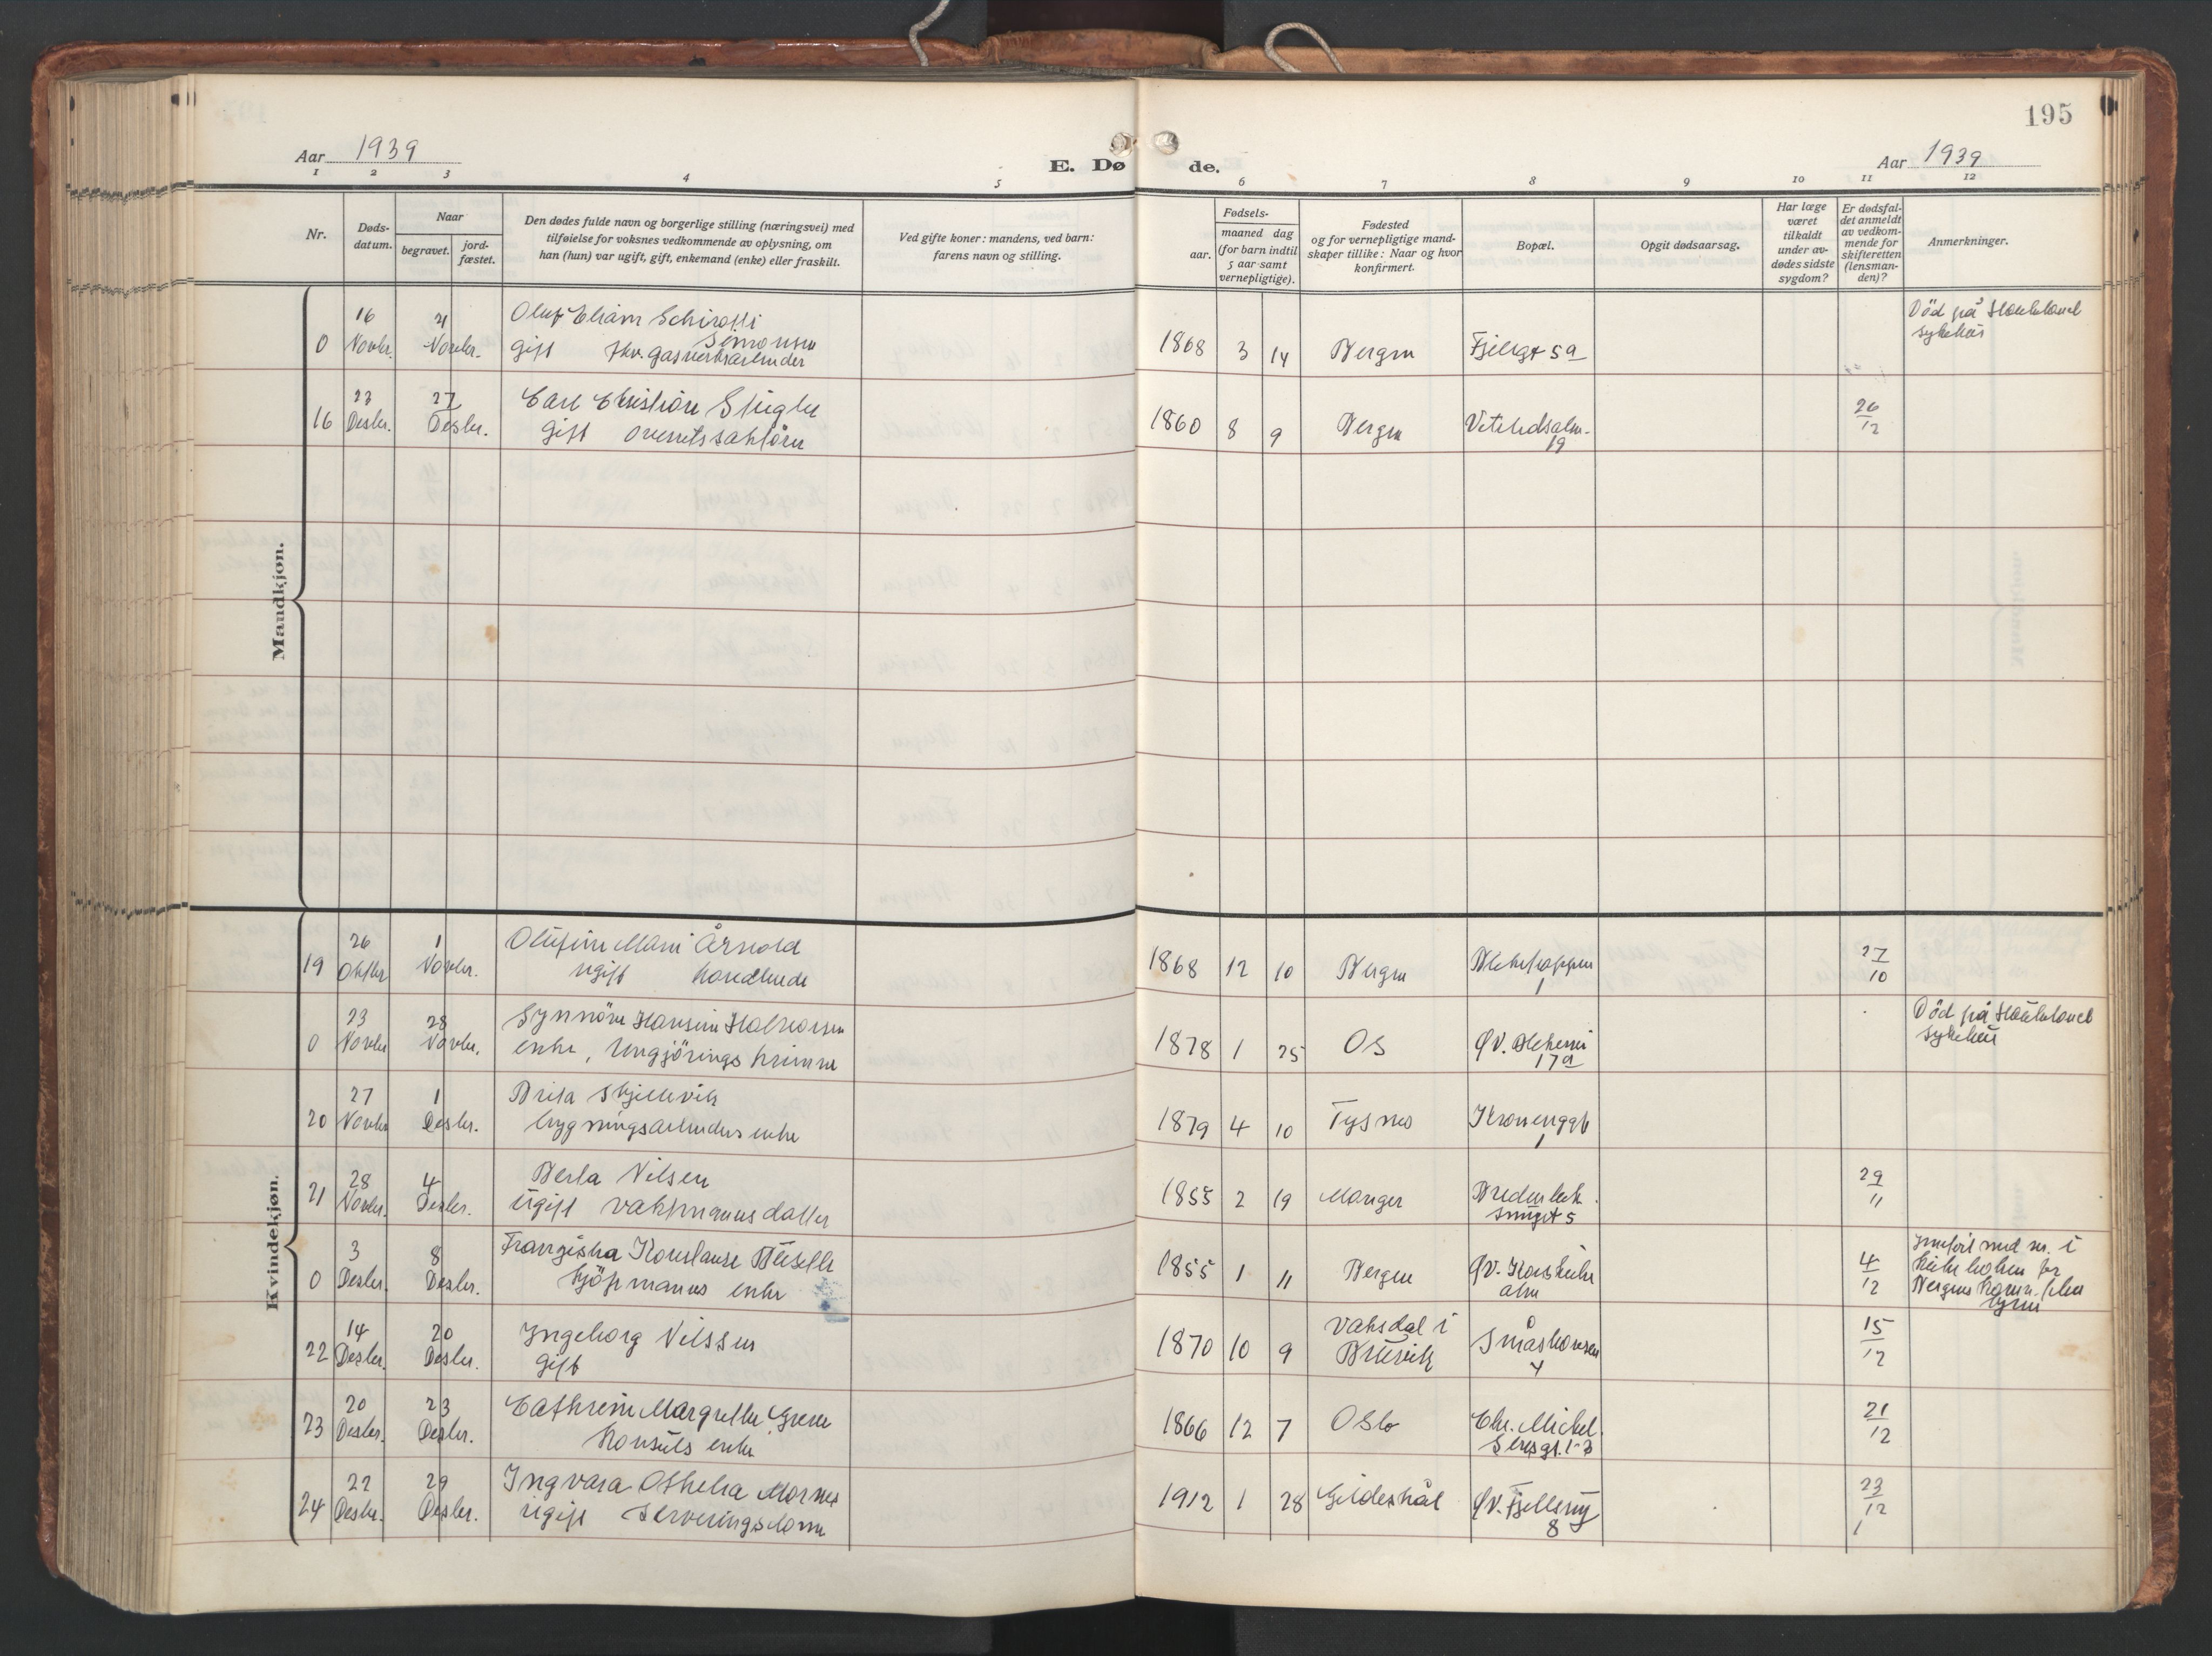 195
Aar 1939
E. Døde.
Aar 1939
1 2 3 4 5 6 7 8 9 10 11 12
Nr.
Døds-
datum.
Naar
begravet.
jord-
fæstet.
Den dødes fulde navn og borgerlige stilling (næringsvei) med
tilføielse for voksnes vedkommende av oplysning, om
han (hun) var ugift, gift, enkemand (enke) eller fraskilt.
Ved gifte koner: mandens, ved barn:
farens navn og stilling.
Fødsels-
aar.
maaned dag
(for barn indtil
5 aar samt
vernepligtige).
Fødested
og for vernepligtige mand-
skaper tillike: Naar og hvor
konfirmert.
Bopæl.
Opgit dødsaarsag.
Har læge
været
tilkaldt
under av-
dødes sidste
sygdom?
Er dødsfal-
det anmeldt
av vedkom-
mende for
skifteretten
(lensman-
den)?
Anmerkninger.
Mandkjøn.
0 16 Novbr. 21 Novbr. Oluf Simonsen
gift fhv. gasverksarbeider
1868 3 14 Bergen Fjellgt 5a
Död på Haukeland
sykehus
16 23 Desbr. 27 Desbr. Carl Christian
gift overrettssakförer
1860 8 9 Bergen 19
26/12
Kvindekjøn.
19 26 Oktbr 1 Novbr. Olufine Marie Årnold
ugift handlende
1868 12 10 Bergen
1
27/10
0 23 Novbr 28 Novbr. Synnöve Hansine Halvorsen
enke, rengjörings kvinne
1878 1 25 Os Øv. Blekevei
17a
Död på Haukeland
sykehus
20 27 Novbr 1 Desbr. Brita Skjellvik
bygningsarbeiders enke
1879 4 10 Tysnes
1
21 28 Novbr. 4 Desbr. Berta Nilsen
ugift vaktmanns datter
1855 2 19 Manger
smuget 5
29/11
0 3 Desbr. 8 Desbr. Franziska Konstanse
kjöpmanns enke
1855 1 11 Bergen Øv. Korskirke
alm
4/12
Innfört med nr. i
kirkeboken for
Bergens
22 14 Desbr. 20 Desbr. Ingeborg Nilssen
gift
1870 10 9 Vaksdal i
Bruvik
Småskansen
4
15/12
23 20 Desbr. 23 Desbr. Cathrine Margrethe
Konsuls enke
1866 12 7 Oslo Chr. Michel
sensgt. 1-3
21/12
24 22 Desbr. 29 Desbr. Ingvara Othelia Mornes
ugift Serveringsdame
1912 1 28 Gildeskål Øv. Fjellsmug
8
23/12
1